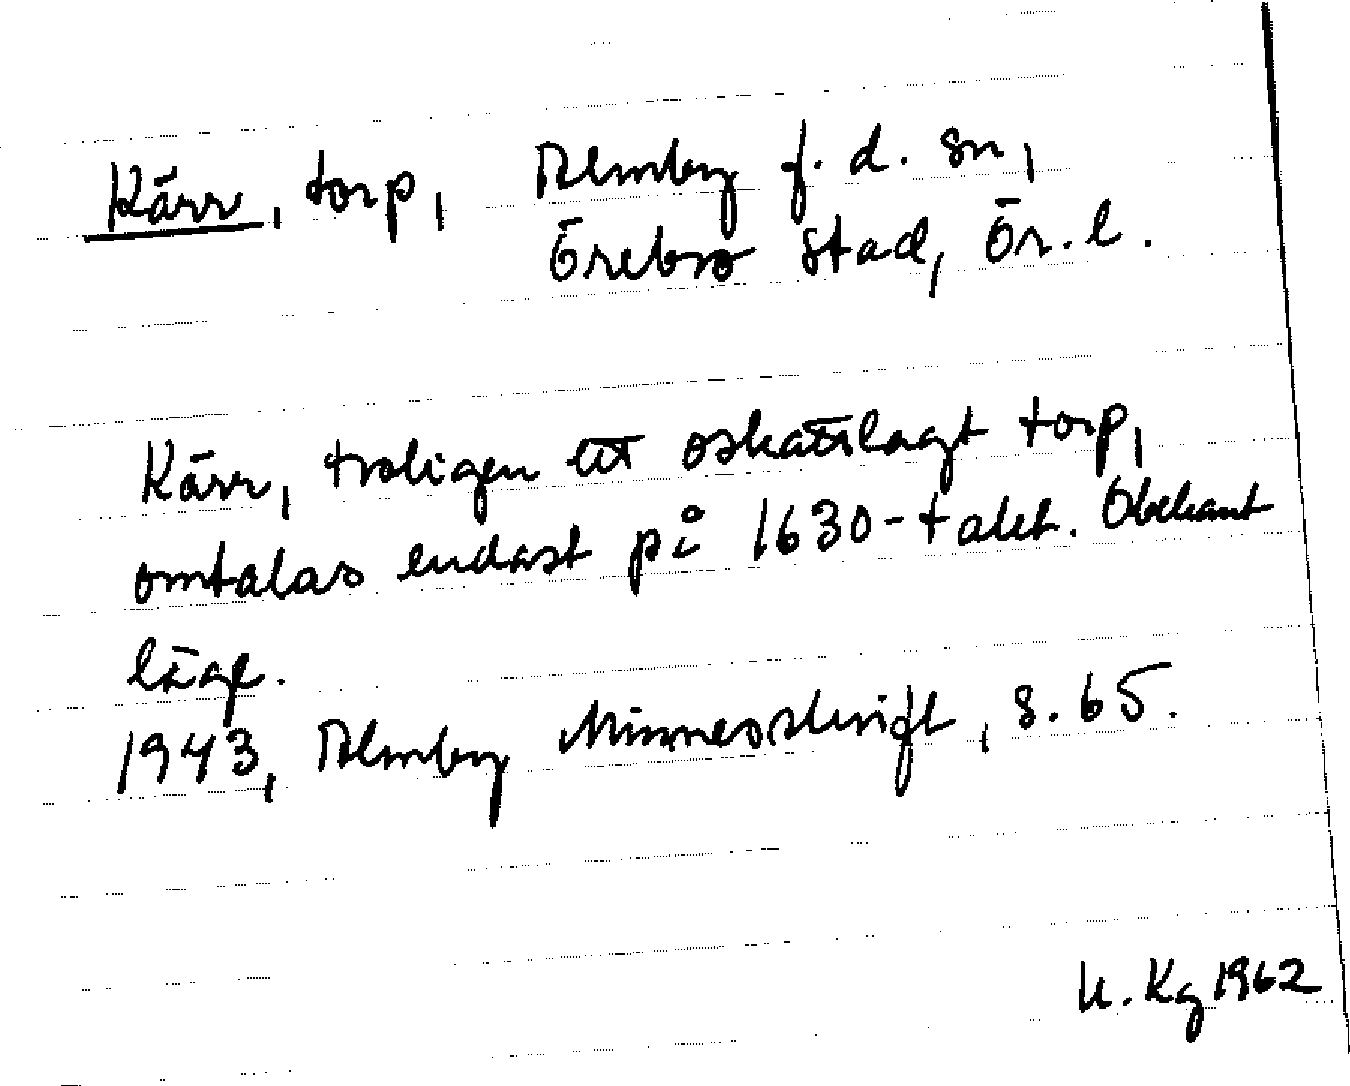 Kärr, torp, Almby f.d. sn,
Örebro stad, Ör.l.
Kärr, troligen ett oskattlagt torp,
omtalas endast på 1630-talet. Obekant
läge.
1943, Almby Minnesskrift, s. 65.
U. Kg 1962